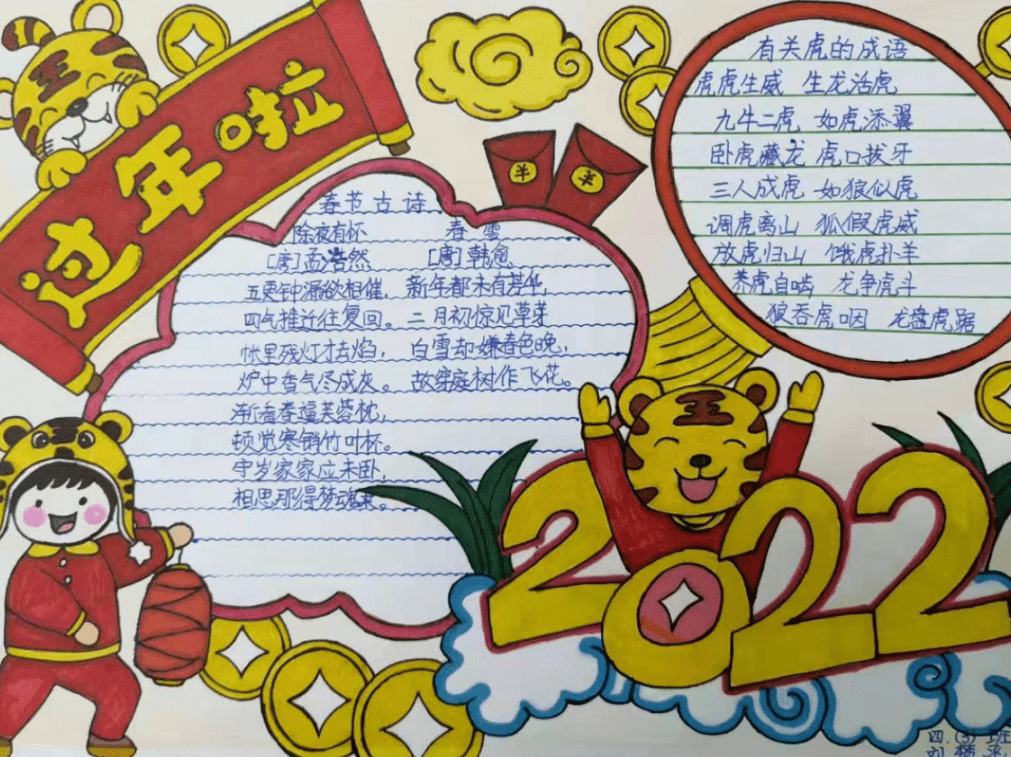 过年啦
春节古诗
除夜有怀 春雪
[唐]孟浩然 [唐]韩愈
五更钟漏欲相催, 新年都未有芳华,
四气推迁往复回。 二月初惊见草芽
帐里残灯才去焰, 白雪却嫌春色晚,
炉中香气尽成灰。 故穿庭树作飞花。
渐看春逼芙蓉枕,
顿觉寒销竹叶杯。
守岁家家应未卧,
相思那得梦魂来。
有关虎的成语
虎虎生威 生龙活虎
九牛二虎 如虎添翼
卧虎藏龙 虎口拔牙
三人成虎 如狼似虎
调虎离山 狐假虎威
放虎归山 饿虎扑羊
养虎自啮 龙争虎斗
狼吞虎咽 龙盘虎踞
2022
四.(3)班
刘